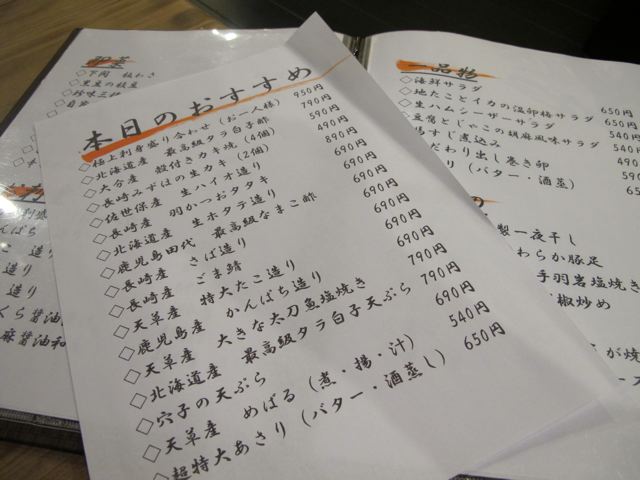 本日のおすすめ
◇極上刺身盛り合わせ（お一人様） 950円
◇北海道産 最高級タラ白子酢 790円
◇大分産 殻付きカキ焼（4個） 590円
◇長崎みずはの生カキ（2個） 490円
◇佐世保産 生ハイオ造り 890円
◇長崎産 羽かつおタタキ 690円
◇北海道産 生ホタテ造り 690円
◇鹿児島田代 最高級なまこ酢 690円
◇長崎産 さば造り 690円
◇長崎産 ごま鯖 690円
◇天草産 特大たこ造り 690円
◇鹿児島産 かんぱち造り 690円
◇天草産 大きな太刀魚塩焼き 790円
◇北海道産 最高級タラ白子天ぷら 790円
◇穴子の天ぷら 690円
◇天草産 めばる（煮・揚・汁） 540円
◇超特大あさり（バター・酒蒸し） 650円
◇下関
珍味三種
一品物
◇海鮮サラダ 650円
◇地たことイカの温卵梅サラダ 650円
◇生ハムシーザーサラダ 650円
◇豆腐とじゃこの胡麻風味サラダ 540円
馬すじ煮込み 540円
だわり出し巻き卵 490円
り（バター・酒蒸） 65
製一夜干し
わらか豚足
手羽岩塩焼き
椒炒め
が焼
んぱち
造り
造り
くら醤油
麻醤油和